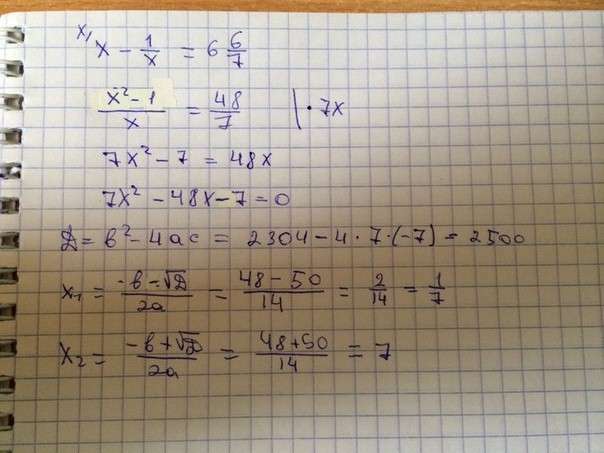 x, x - 1/x = 6 6/7
(x² - 1)/x = 48/7 | · 7x
7x² - 7 = 48x
7x² - 48x - 7 = 0
D = b² - 4ac = 2304 - 4 · 7 · (-7) = 2500
x₁ = (-b - √D)/2a = (48 - 50)/14 = 2/14 = 1/7
x₂ = (-b + √D)/2a = (48 + 50)/14 = 7